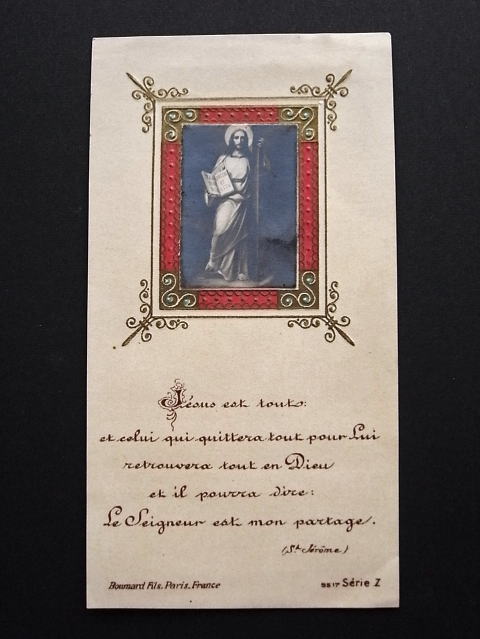 Jésus est tout:
et celui qui quittera tout pour Lui
retrouvera tout en Dieu
et il pourra dire:
Le Seigneur est mon partage.
(St Jérôme)
Boumard Fils. Paris. France
5517 Série Z